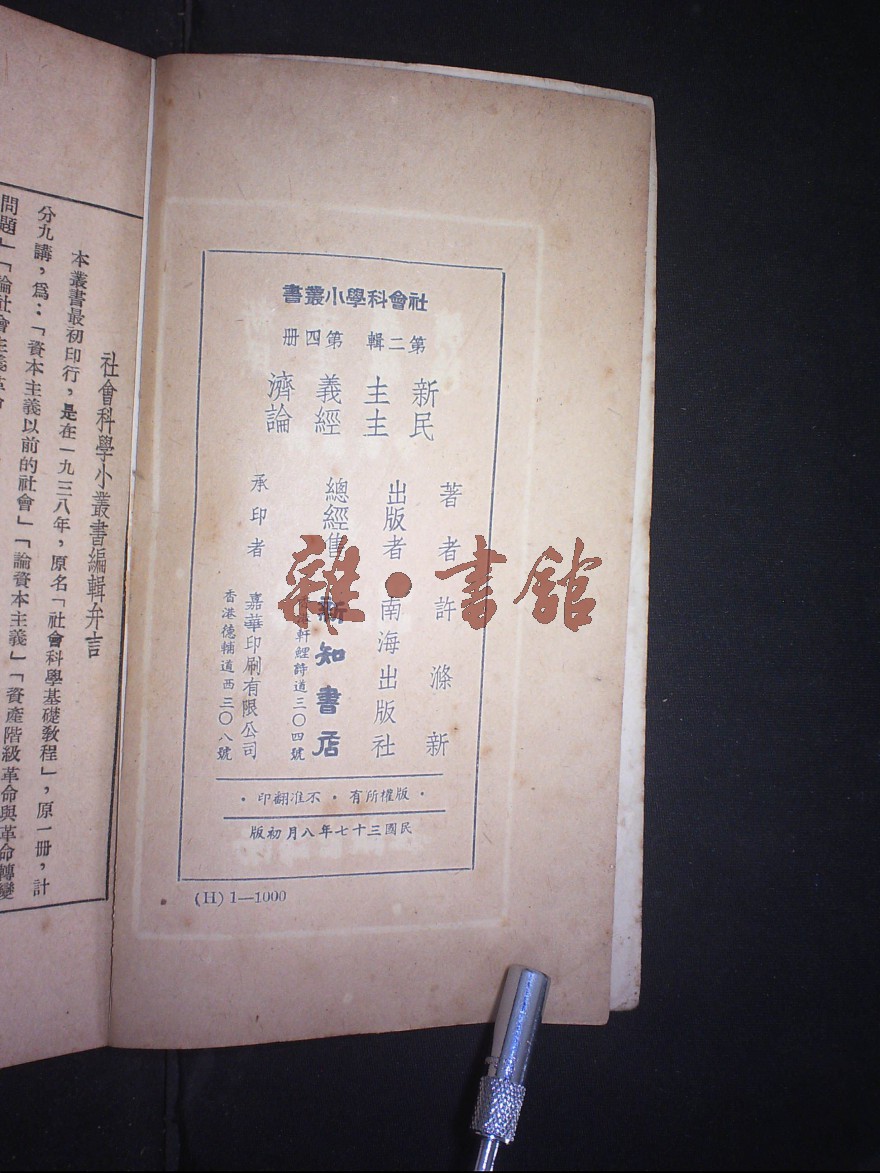 社會科學小叢書
第二輯 第四冊
新民
主主
義經
濟論
著者 許滌新
出版者 南海出版社
總經售 新知書店
軒鯉詩道三〇四號
承印者 嘉華印刷有限公司
香港德輔道西三〇八號
·版權所有·不准翻印·
民國三十七年八月初版
(H) 1—1000
雜·書館
社會科學小叢書編輯弁言
本叢書最初印行，是在一九三八年，原名「社會科學基礎教程」，原一冊，計
分九講，爲：「資本主義以前的社會」「論資本主義」「資產階級革命與革命轉變
問題」「論社會主義革命